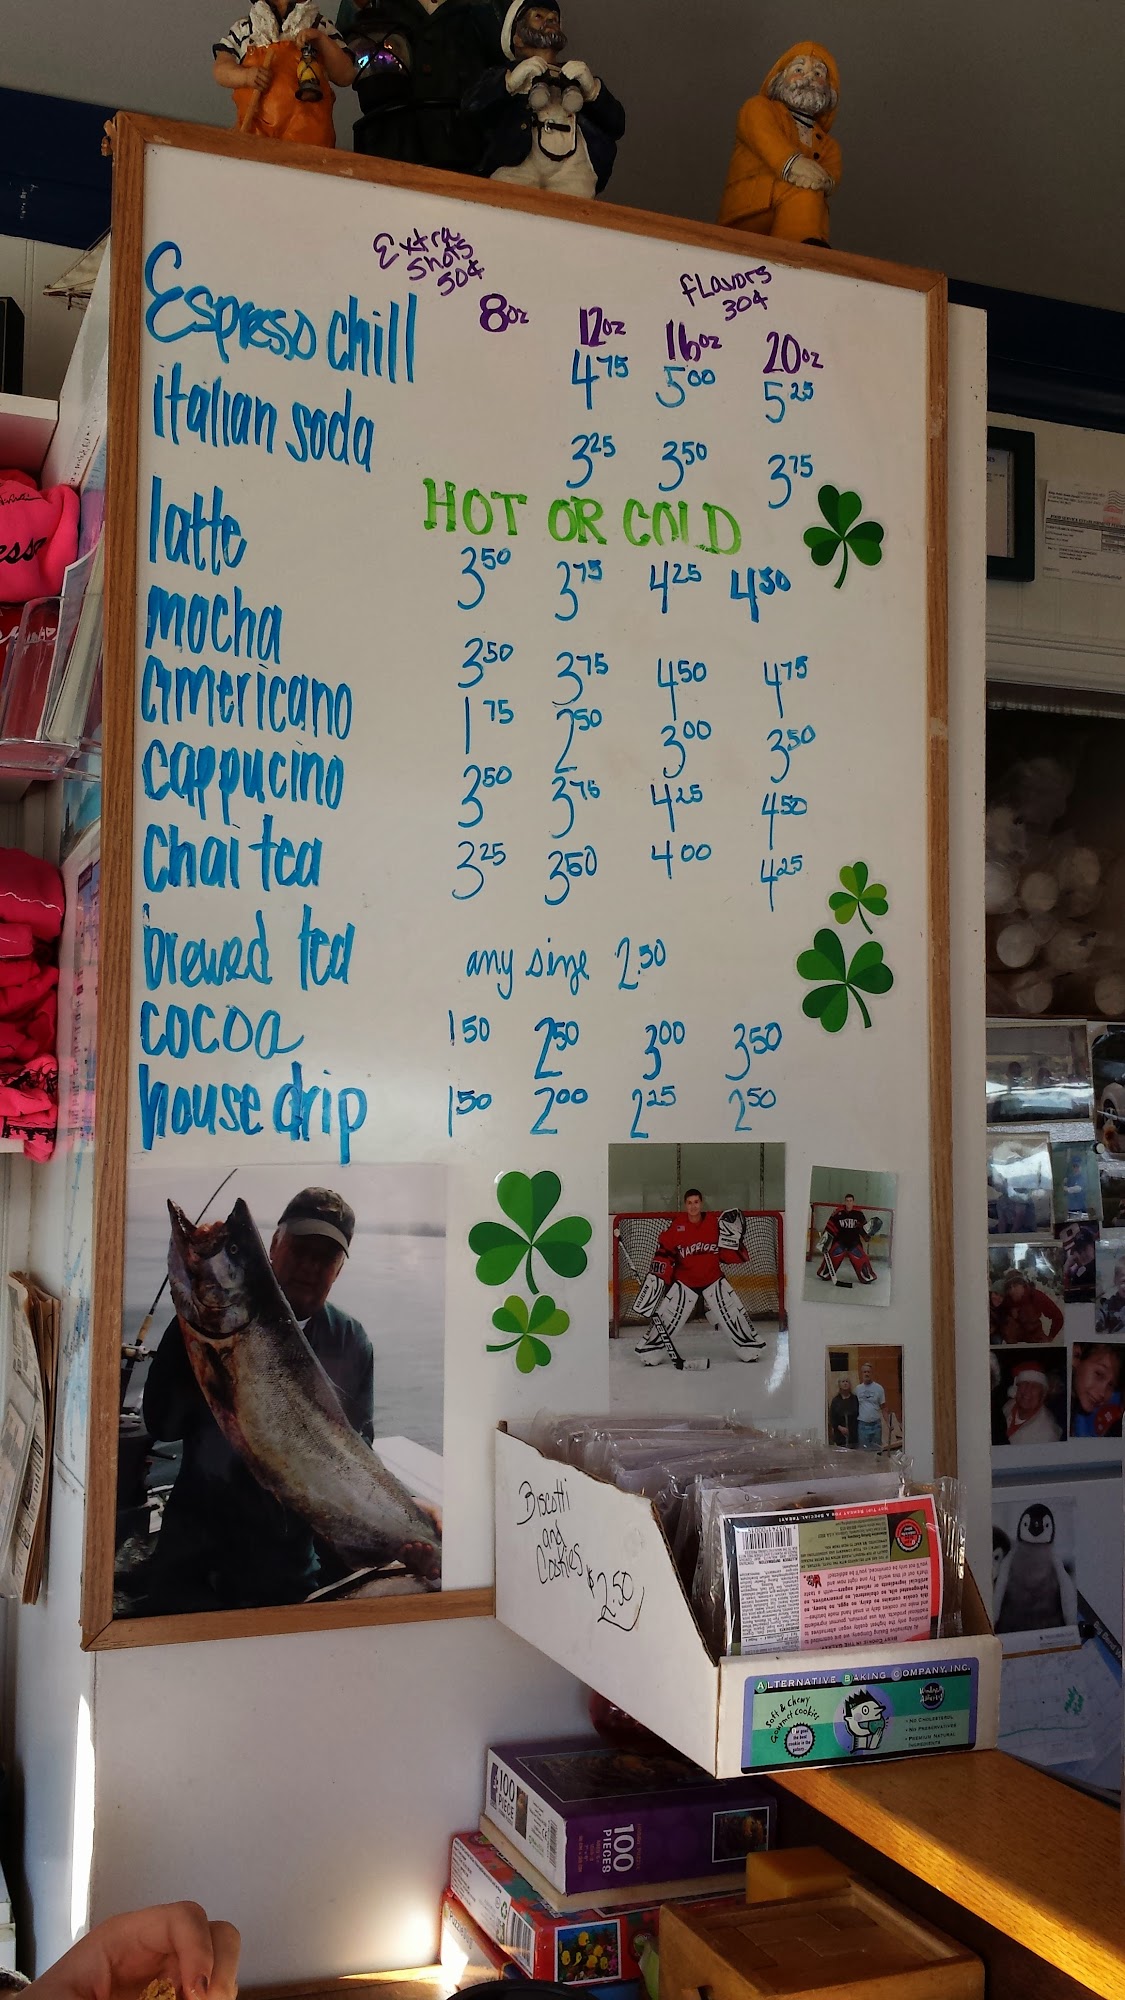 Extra
shots
50¢
flavors
30¢
8oz 12oz 16oz 20oz
Espresso chill 4 75 5 00 5 25
italian soda 3 25 3 50 3 75
HOT OR COLD
latte 3 50 3 75 4 25 4 50
mocha 3 50 3 75 4 50 4 75
americano 1 75 2 50 3 00 3 50
cappucino 3 50 3 75 4 25 4 50
Chai tea 3 25 3 50 4 00 4 25
brewed tea any size 2.50
cocoa 1 50 2 50 3 00 3 50
house drip 1 50 2 00 2 25 2 50
WARRIORS
WSHC
Biscotti
and
Cookies
$2.50
ALTERNATIVE BAKING COMPANY, INC.
Soft & Chewy
Gourmet Cookies
• NO CHOLESTEROL
• NO PRESERVATIVES
• PREMIUM NATURAL
INGREDIENTS
100
PIECE
100
PIECES